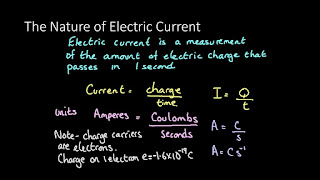 The Nature of Electric Current
Electric current is a measurement
of the amount of electric charge that
passes in 1 second
Current = charge
time
I = Q
t
units Amperes = Coulombs
Seconds
A = C
s
Note- charge carriers
are electrons.
A = C s⁻¹
Charge on 1 electron e=-1.6x10⁻¹⁹C